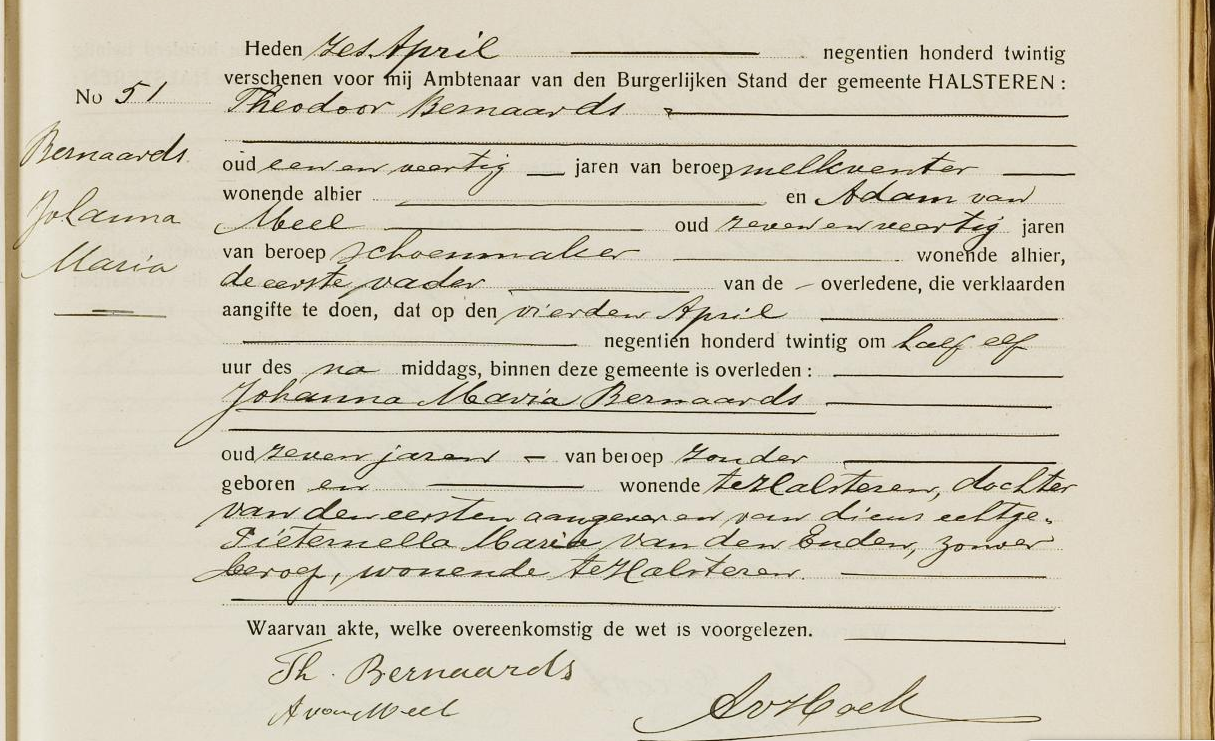 Heden zes April negentien honderd twintig
verschenen voor mij Ambtenaar van den Burgerlijken Stand der gemeente HALSTEREN:
No 51
Theodoor Bernaards
Bernaards
Johanna
Maria
oud een en veertig jaren van beroep melkventer
wonende alhier en Adam van
Meel oud zeven en veertig jaren
van beroep schoenmaker wonende alhier,
de eerste vader van de overledene, die verklaarden
aangifte te doen, dat op den vierden April
negentien honderd twintig om half elf
uur des na middags, binnen deze gemeente is overleden:
Johanna Maria Bernaards
oud zeven jaren van beroep zonder
geboren en wonende te Halsteren, dochter
van den eersten aangever en van diens echtge-
Pieternella Maria van den Enden, zonder
beroep, wonende te Halsteren.
Waarvan akte, welke overeenkomstig de wet is voorgelezen.
Th. Bernaards
A van Meel
AvHoek